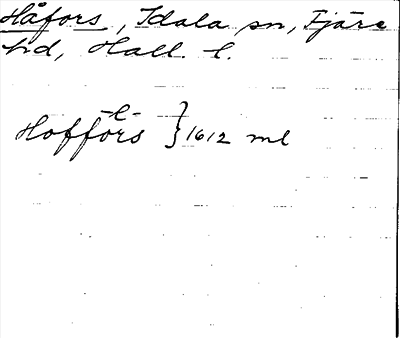 Håfors, Idala sn, Fjäre
hd, Hall. l.
-l-
Hoffors } 1612 ml